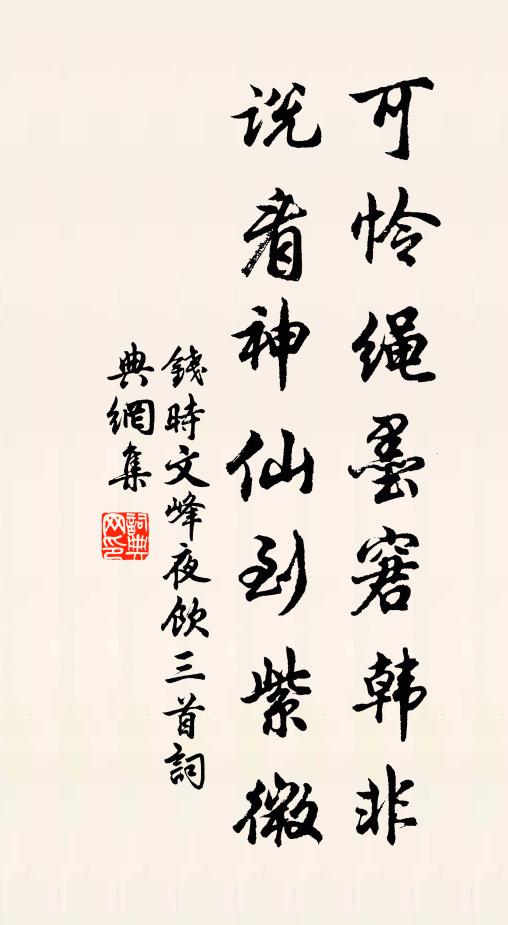 可怜绳墨窘韩非
说着神仙到紫微
錢時文峰夜飲三首詞
典網集
詞典
网印